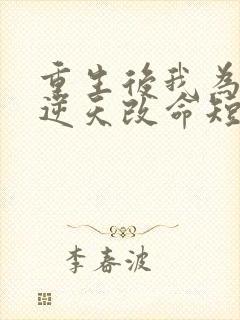 重生後我為
逆天改命短
李春波